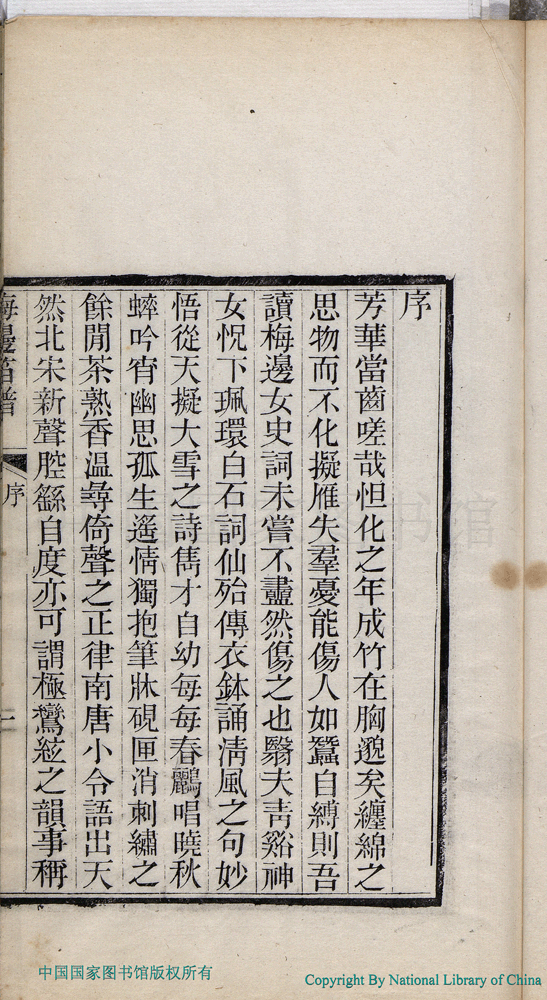 序
芳華當齒嗟哉怛化之年成竹在胸邈矣纏綿之
思物而不化擬雁失羣憂能傷人如蠶自縛則吾
讀梅邊女史詞未嘗不盡然傷之也繄夫靑谿神
女怳下珮環白石詞仙殆傳衣鉢誦淸風之句妙
悟從天擬大雪之詩雋才自幼每每春鸝唱曉秋
蟀吟宵幽思孤生遙情獨抱筆牀硯匣消刺繡之
餘閒茶熟香溫尋倚聲之正律南唐小令語出天
然北宋新聲腔繇自度亦可謂極鸞絃之韻事稱
梅邊笛譜
序
一
书馆
中国国家图书馆版权所有
Copyright By National Library of China